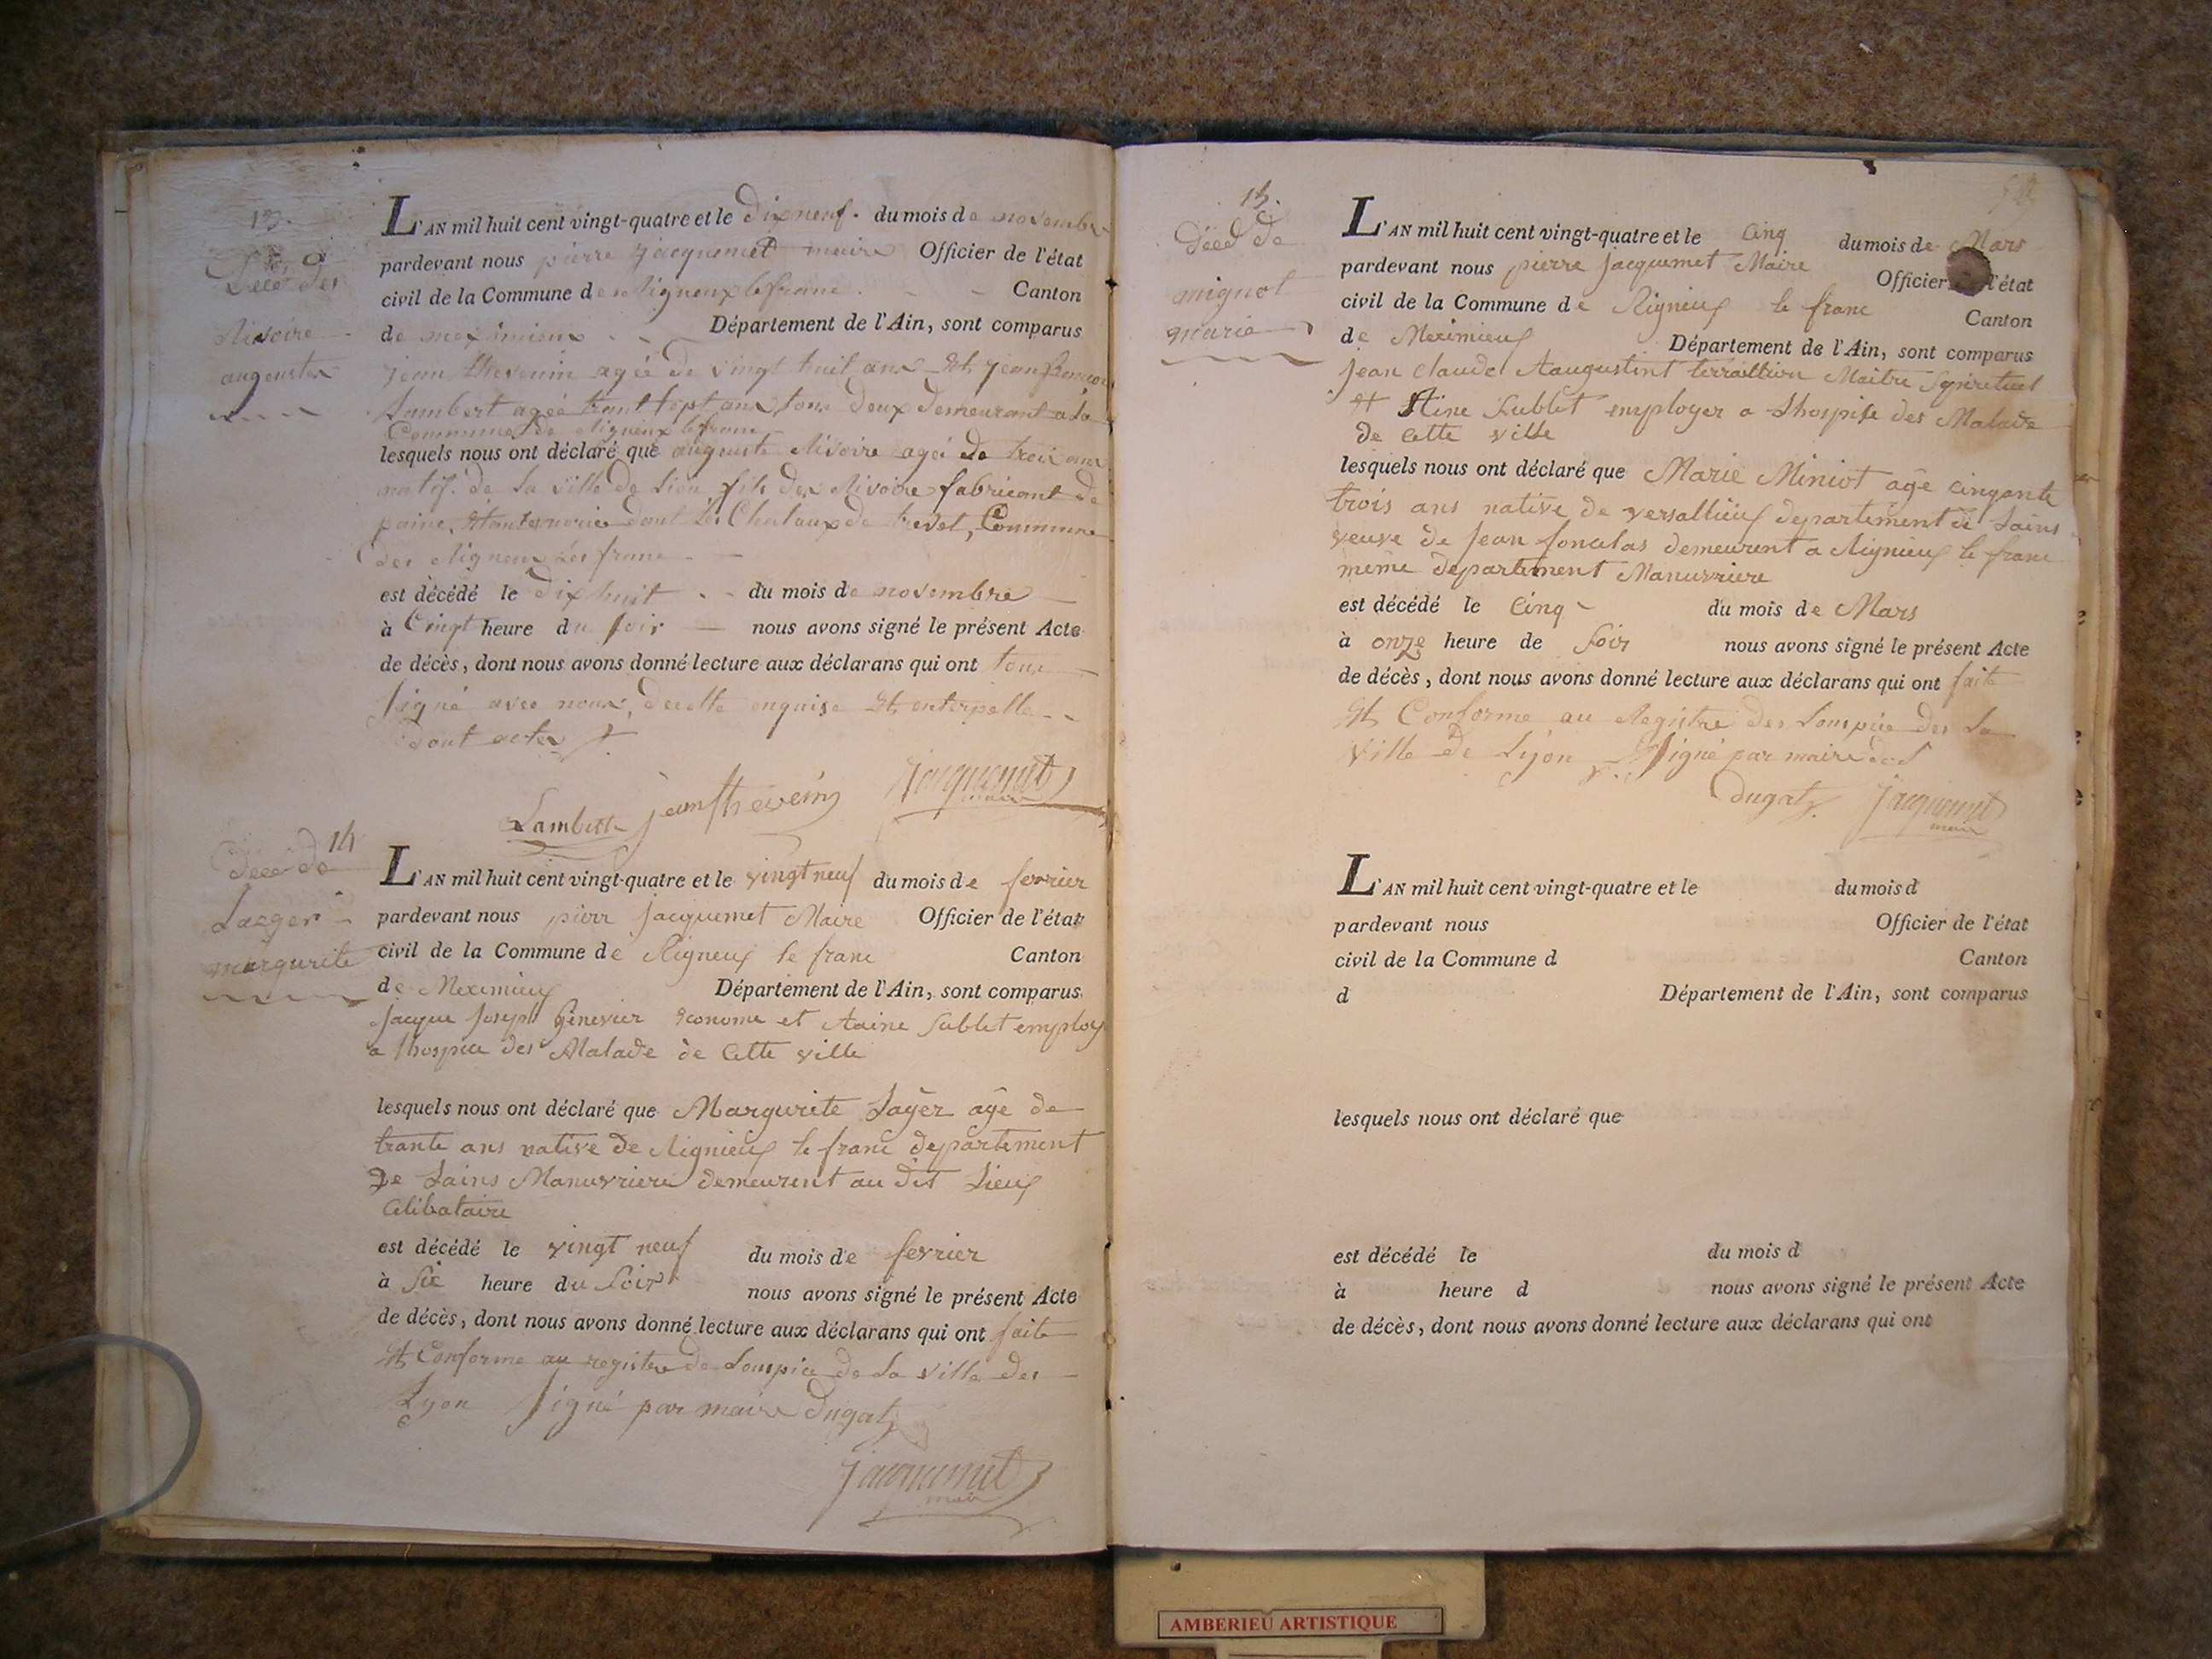 13.
Décé des
Rivoire
auguste
L'AN mil huit cent vingt-quatre et le dix neuf. du mois de novembre
pardevant nous pierre jacquemet maire Officier de l'état
civil de la Commune de Rigneux lefranc Canton
de meximieux Département de l'Ain, sont comparus
jean thevenin agée de vingt huit ans et jean
Lambert ageé trant sept ans tous deux demeurant a la
Commune de Rigneux lefranc
lesquels nous ont déclaré que auguste Rivoire ageé de trois ans
natif de la ville de Lion fils des Rivoire fabricant de
dont les Chataux de trevet, Commune
des Rigneux les franc
est décédé le dix huit du mois de novembre
à Cinqt heure du soir nous avons signé le présent Acte
de décès, dont nous avons donné lecture aux déclarans qui ont tous
signé avec nous, decette enquise et enterpelle
dont actes
Lambert jean thevenin jacquemet
maire
14
Décé de
Laeger
margurite
L'AN mil huit cent vingt-quatre et le vingt neuf du mois de fevrier
pardevant nous pierr jacquemet Maire Officier de l'état
civil de la Commune de Rigneux le franc Canton
de Meximieux Département de l'Ain, sont comparus
jacque joseph Genevier économe et Aaine Sublet employ
a lhospice des Malade de Cette ville
lesquels nous ont déclaré que Margurite Layer age de
trante ans native de Rignieux le franc departement
De Lains Manuvriere demeurent au dit Lieux
Celibataire
est décédé le vingt neuf du mois de fevrier
à Six heure du Soir nous avons signé le présent Acte
de décès, dont nous avons donné lecture aux déclarans qui ont faite
et Conforme au registre de Louspice de La ville des
Lyon Signé par maire dugat
jacquemet
maire
15.
Décé de
mignot
marie
L'AN mil huit cent vingt-quatre et le Cinq du mois de Mars
pardevant nous pierre jacquemet Maire Officier l'état
civil de la Commune de Rignieux le franc Canton
de Meximieux Département de l'Ain, sont comparus
jean claude Aaugustint Maitre Spirituel
et Aine Sublet employer a Lhospise des Malade
de cette ville
lesquels nous ont déclaré que Marie Miniot age cinqante
trois ans native de versallieux departement de Lains
veuve de jean fonalas demeurent a Rignieux le franc
même departement Manuvriere
est décédé le Cinq du mois de Mars
à onze heure de Soir nous avons signé le présent Acte
de décès, dont nous avons donné lecture aux déclarans qui ont faite
et Conforme au Registre des Louspice des La
ville de Lyon Signé par maire
dugat jacquemet
maire
L'AN mil huit cent vingt-quatre et le du mois d
pardevant nous Officier de l'état
civil de la Commune d Canton
d Département de l'Ain, sont comparus
lesquels nous ont déclaré que
est décédé le du mois d
à heure d nous avons signé le présent Acte
de décès, dont nous avons donné lecture aux déclarans qui ont
AMBERIEU ARTISTIQUE